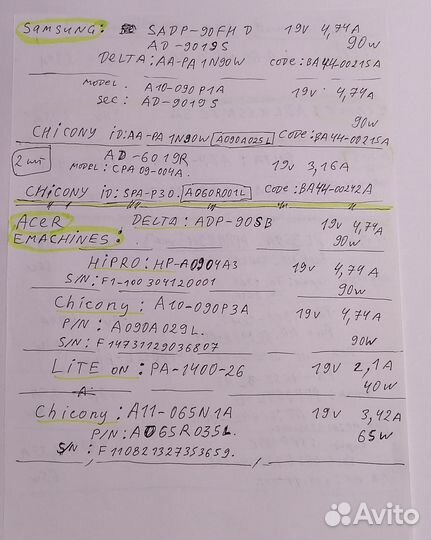 SAMSUNG: SADP-90FH D 19v 4,74A
AD-9019S 90w
DELTA: AA-PA 1N90W CODE: BA44-00215A
MODEL. A10-090P1A 19v 4,74A
SEC: AD-9019S
90w
CHICONY iD: AA-PA 1N90W A090A025L CODE: BA44-00215A
2 шт AD-6019R 19v 3,16A
MODEL: CPA09-004A.
CHICONY iD: SPA-P30. A060R001L CODE: BA44-00242A
ACER DELTA: ADP-90SB 19v 4,74A
EMACHINES: 90w
HIPRO: HP-A0904A3 19v 4,74A
S/N: F1-100304120001 90w
Chicony: A10-090P3A 19v 4,74A
P/N: A090A029L.
S/N: F14731129036807 90w
LITE ON: PA-1400-26 19v 2,1A
A 40w
Chicony: A11-065N1A 19v 3,42A
P/N: A065R035L. 65w
S/N: F110821327353659.
Avito